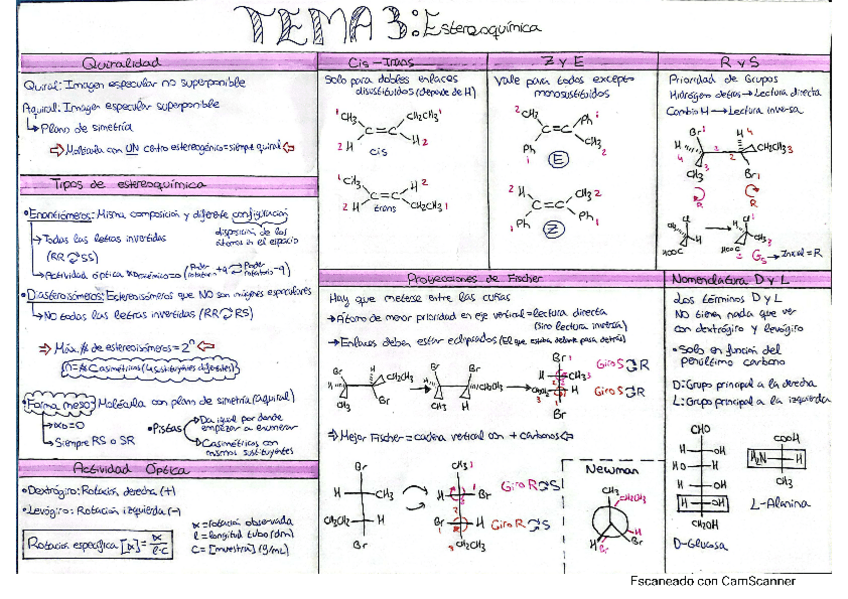 TEMA 3: Estereoquímica
Quiralidad
Quiral: Imagen especular no superponible
Aquiral: Imagen especular superponible
↳ Plano de simetría
⇒ Molécula con UN centro estereogénico = siempre quiral ⇐
Tipos de estereoquímica
• Enantiómeros: Misma composición y diferente configuración
disposición de los
átomos en el espacio
→ Todas las letras invertidas
(RR SS)
→ Actividad óptica
• Diasteroisómeros: Estereoisómeros que NO son imágenes especulares
↳ NO todas las letras invertidas (RR RS)
⇒ Máx. # de estereoisómeros = 2ⁿ ⇐
n = # C asimétricos (4 sustituyentes diferentes)
• Forma meso: Molécula con plano de simetría (aquiral)
→ α = 0
→ Siempre RS o SR
• Pistas
Da igual por donde
empezar a enumerar
C asimétricos con
mismos sustituyentes
Actividad Óptica
• Dextrógiro: Rotación derecha (+)
• Levógiro: Rotación izquierda (-)
Rotación específica [α] = α / l·c
α = rotación observada
l = longitud tubo (dm)
C = [muestra] (g/mL)
Cis-Trans
Solo para dobles enlaces
disustituidos (depende de H)
1 CH3 CH2CH3 1
C=C
2 H H 2
cis
1 CH3 H 2
C=C
2 H CH2CH3 1
trans
Z y E
Vale para todos excepto
monosustituidos
2 CH3 Ph 1
C=C
Ph CH3 2
1
E
2 H CH3 2
C=C
1 Ph Ph 1
Z
R y S
Prioridad de Grupos
Hidrógeno detrás → Lectura directa
Cambio H → Lectura inversa
Br 1 H 4
H CH2CH3 3
4 2
CH3 3 Br 1
R R
Cl
CH3
H
HOOC
→ Inicial = R
Proyecciones de Fischer
Hay que meterse entre las cuñas
→ Átomo de menor prioridad en eje vertical = lectura directa
(sino lectura inversa)
→ Enlaces deben estar eclipsados (El que estaba delante pasa detrás)
Br H CH2CH3
H CH3 Br
Br Br
CH3 H H CH2CH3
Br 1
H CH3 Giro S R
Giro S R
Br
⇒ Mejor Fischer = cadena vertical con + carbonos ⇐
Br
H CH3
CH3CH2 H
Br
CH3
H Br Giro R S
Br H Giro R S
CH2CH3
Newman
CH3
CH2CH3
H Br H Br
Nomenclatura D y L
Los términos D y L
No tienen nada que ver
con dextrógiro y levógiro
• Solo en función del
penúltimo carbono
D: Grupo principal a la derecha
L: Grupo principal a la izquierda
CHO
H OH
HO H
H OH
H OH
CH2OH
D-Glucosa
COOH
H2N H
CH3
L-Alanina
Escaneado con CamScanner